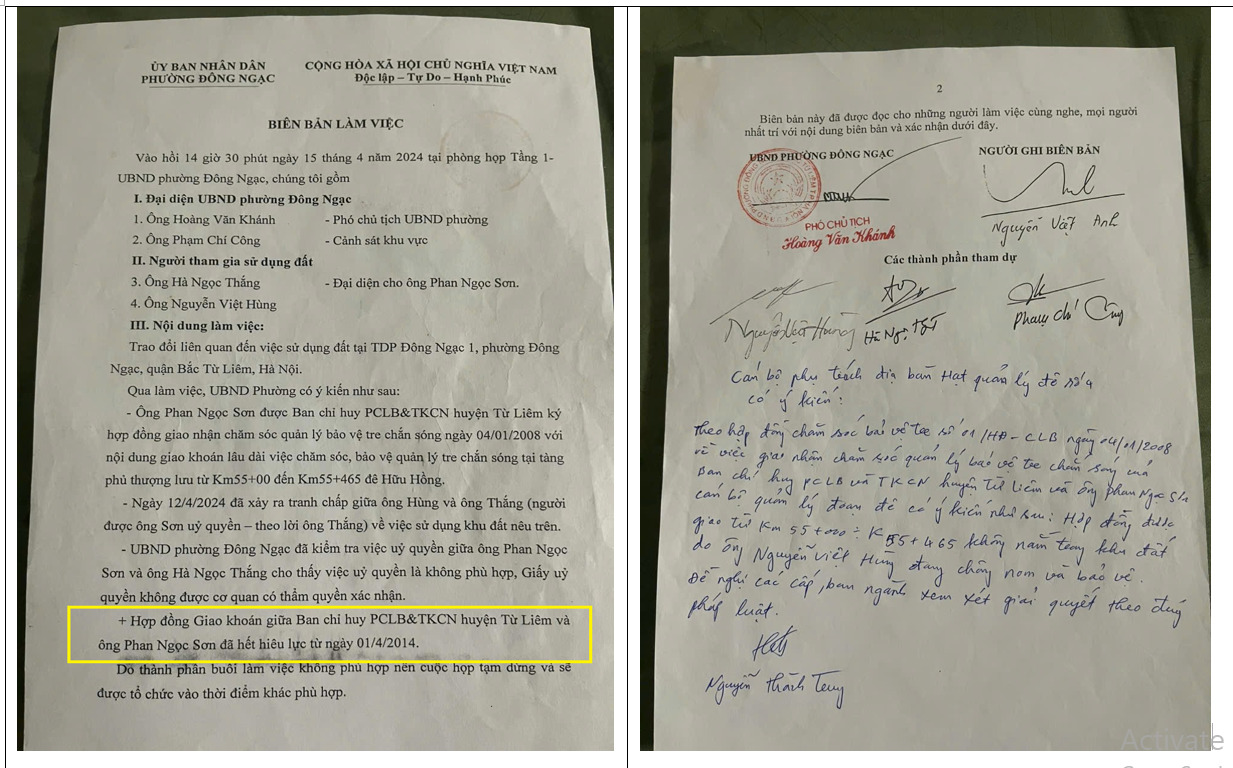 ỦY BAN NHÂN DÂN
PHƯỜNG ĐÔNG NGẠC
CỘNG HÒA XÃ HỘI CHỦ NGHĨA VIỆT NAM
Độc lập – Tự Do – Hạnh Phúc
BIÊN BẢN LÀM VIỆC
Vào hồi 14 giờ 30 phút ngày 15 tháng 4 năm 2024 tại phòng họp Tầng 1-
UBND phường Đông Ngạc, chúng tôi gồm
I. Đại diện UBND phường Đông Ngạc
1. Ông Hoàng Văn Khánh - Phó chủ tịch UBND phường
2. Ông Phạm Chí Công - Cảnh sát khu vực
II. Người tham gia sử dụng đất
3. Ông Hà Ngọc Thắng - Đại diện cho ông Phan Ngọc Sơn.
4. Ông Nguyễn Việt Hùng
III. Nội dung làm việc:
Trao đổi liên quan đến việc sử dụng đất tại TDP Đông Ngạc 1, phường Đông
Ngạc, quận Bắc Từ Liêm, Hà Nội.
Qua làm việc, UBND Phường có ý kiến như sau:
- Ông Phan Ngọc Sơn được Ban chi huy PCLB&TKCN huyện Từ Liêm ký
hợp đồng giao nhận chăm sóc quản lý bảo vệ tre chắn sóng ngày 04/01/2008 với
nội dung giao khoán lâu dài việc chăm sóc, bảo vệ quản lý tre chắn sóng tại tàng
phủ thượng lưu từ Km55+00 đến Km55+465 đê Hữu Hồng.
- Ngày 12/4/2024 đã xảy ra tranh chấp giữa ông Hùng và ông Thắng (người
được ông Sơn uỷ quyền – theo lời ông Thắng) về việc sử dụng khu đất nêu trên.
- UBND phường Đông Ngạc đã kiểm tra việc uỷ quyền giữa ông Phan Ngọc
Sơn và ông Hà Ngọc Thắng cho thấy việc uỷ quyền là không phù hợp, Giấy uỷ
quyền không được cơ quan có thẩm quyền xác nhận.
+ Hợp đồng Giao khoán giữa Ban chi huy PCLB&TKCN huyện Từ Liêm và
ông Phan Ngọc Sơn đã hết hiệu lực từ ngày 01/4/2014.
Do thành phần buổi làm việc không phù hợp nên cuộc họp tạm dừng và sẽ
được tổ chức vào thời điểm khác phù hợp.
2
Biên bản này đã được đọc cho những người làm việc cùng nghe, mọi người
nhất trí với nội dung biên bản và xác nhận dưới đây.
UBND PHƯỜNG ĐÔNG NGẠC
NGƯỜI GHI BIÊN BẢN
PHÓ CHỦ TỊCH
Hoàng Văn Khánh
Nguyễn Việt Anh
Các thành phần tham dự
Nguyễn Việt Hùng
Phạm Chí Công
Cán bộ phụ trách địa bàn Hạt quản lý đê số 4
có ý kiến:
Theo hợp đồng chăm sóc bảo vệ tre số 01/HĐ-CLB ngày 04/01/2008
về việc giao nhận chăm sóc quản lý bảo vệ tre chắn sóng của
Ban chỉ huy PCLB và TKCN huyện Từ Liêm và ông Phan Ngọc Sơn
cán bộ quản lý đoạn đê có ý kiến như sau: Hợp đồng được
giao từ Km 55+000 ÷ K55+465 không nằm trong khu đất
do ông Nguyễn Việt Hùng đang chông nom và bảo vệ.
Đề nghị các cấp, ban ngành xem xét giải quyết theo đúng
pháp luật.
Nguyễn Thành
Activate